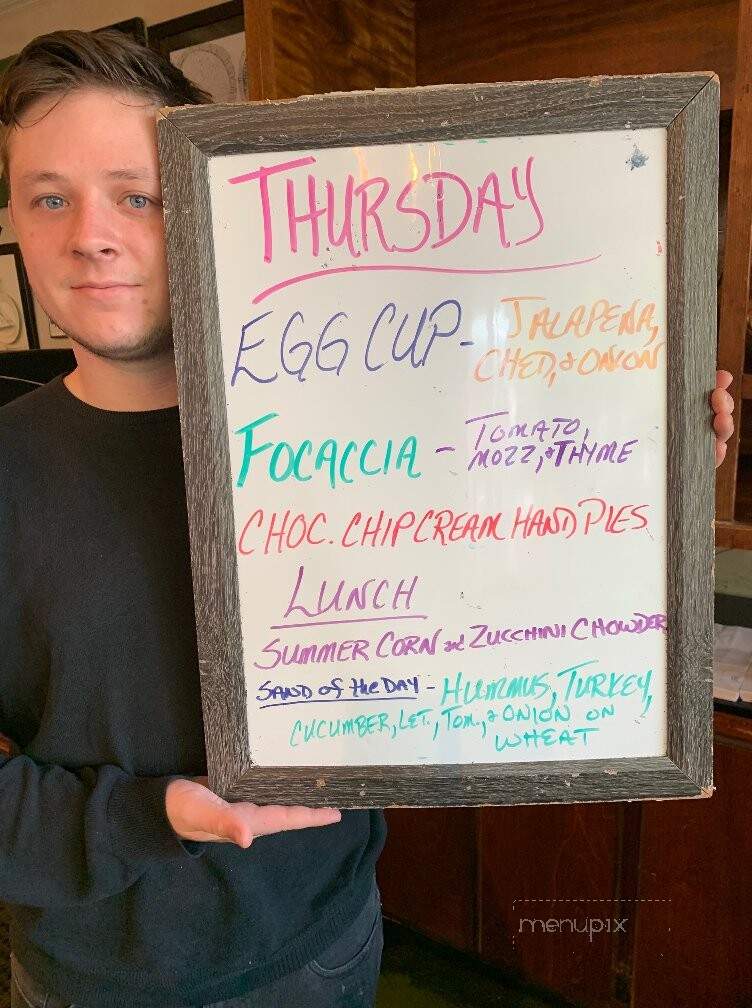 THURSDAY
EGG CUP - JALAPENA,
CHED, & ONION
FOCACCIA - TOMATO,
MOZZ, & THYME
CHOC. CHIP CREAM HAND PIES
LUNCH
SUMMER CORN and ZUCCHINI CHOWDER
SAND of the DAY - HUMMUS, TURKEY,
CUCUMBER, LET., TOM., & ONION ON
WHEAT
menupix